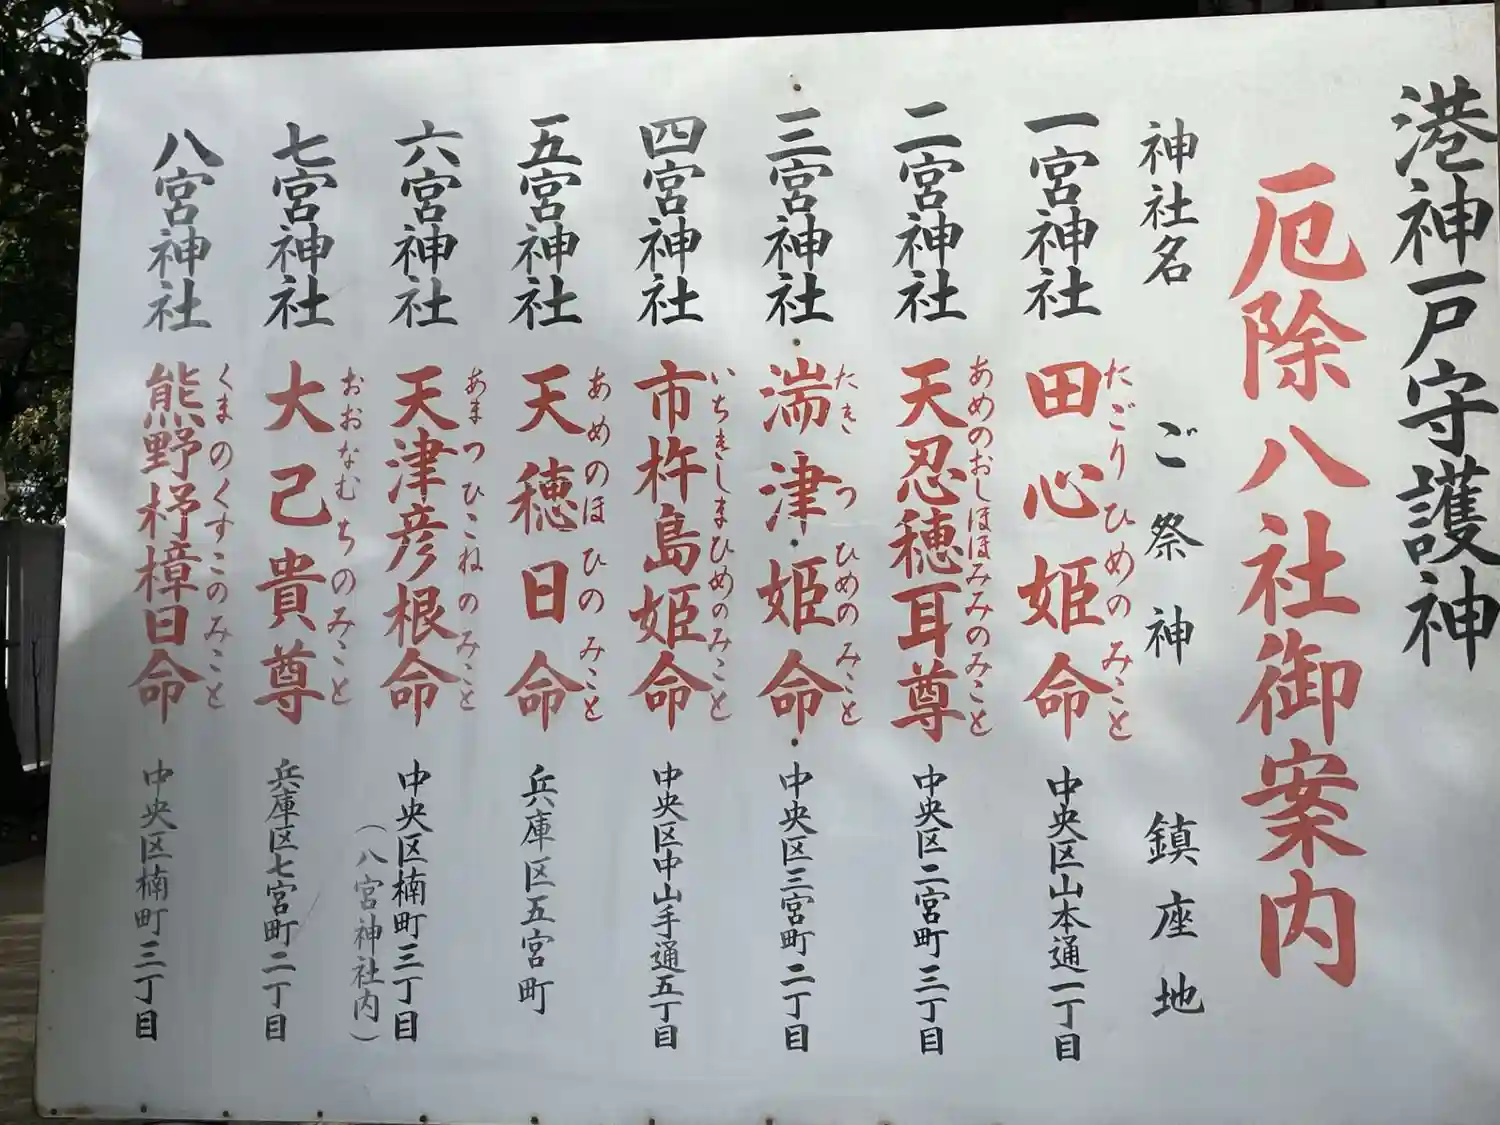 港神戸守護神
厄除八社御案内
神社名 ご祭神 鎮座地
一宮神社 田心姫命 中央区山本通一丁目
たごりひめのみこと
二宮神社 天忍穂耳尊 中央区二宮町三丁目
あめのおしほほみみのみこと
三宮神社 湍津姫命 中央区三宮町二丁目
たきつひめのみこと
四宮神社 市杵島姫命 中央区中山手通五丁目
いちきしまひめのみこと
五宮神社 天穂日命 兵庫区五宮町
あめのほひのみこと
六宮神社 天津彦根命 中央区楠町三丁目
あまつひこねのみこと
（八宮神社内）
七宮神社 大己貴尊 兵庫区七宮町二丁目
おおなむちのみこと
八宮神社 熊野杼樟日命 中央区楠町三丁目
くまのくすこのみこと